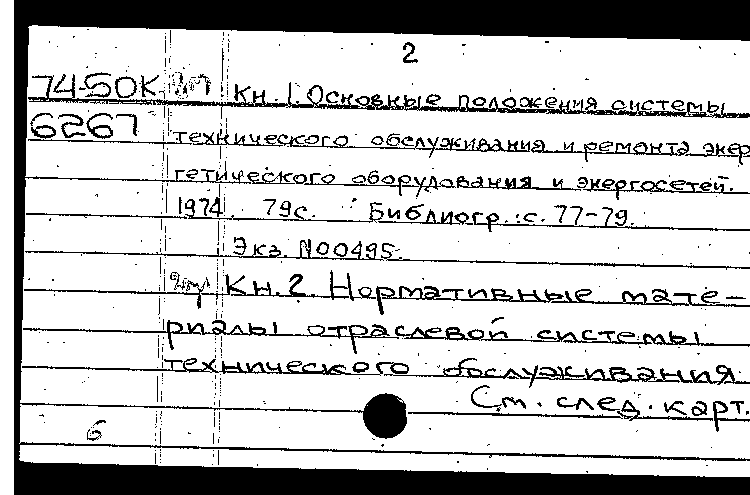 2
74-50К Кн. 1. Основные положения системы
6267 технического обслуживания и ремонта энер
гетического оборудования и энергосетей.
1974. 79с. Библиогр.: с. 77-79.
Экз. N00495.
Кн. 2. Нормативные мате-
риалы отраслевой системы
технического обслуживания
См. след. карт.
6